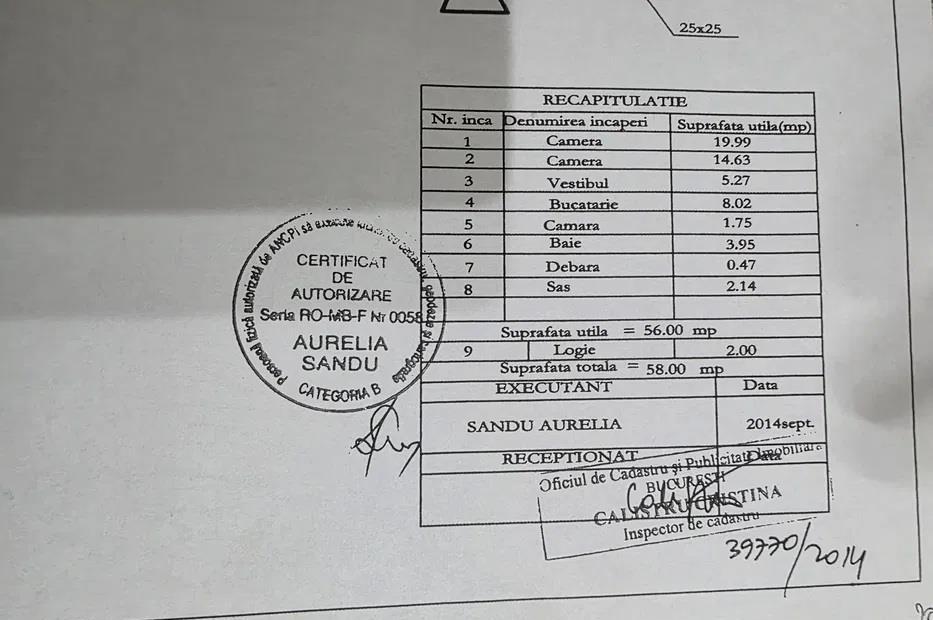 25x25
RECAPITULATIE
Nr. inca Denumirea incaperi Suprafata utila(mp)
1 Camera 19.99
2 Camera 14.63
3 Vestibul 5.27
4 Bucatarie 8.02
5 Camara 1.75
6 Baie 3.95
7 Debara 0.47
8 Sas 2.14
Suprafata utila = 56.00 mp
9 Logie 2.00
Suprafata totala = 58.00 mp
EXECUTANT Data
SANDU AURELIA 2014sept.
RECEPTIONAT Data
Oficiul de Cadastru şi Publicitate Imobiliara
BUCUREŞTI
CALISTRU CRISTINA
Inspector de cadastru
39770/2014
Persoană fizică autorizată de ANCPI să execute
cadastru, geodezie şi cartografie
CERTIFICAT
DE
AUTORIZARE
Seria RO-MB-F Nr 0058
AURELIA
SANDU
CATEGORIA B